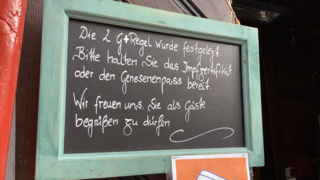 Die 2 G+Regel wurde festgelegt.
Bitte halten Sie das Impfzertifikat
oder den Genesenenpass bereit.
Wir freuen uns, Sie als Gäste
begrüßen zu dürfen